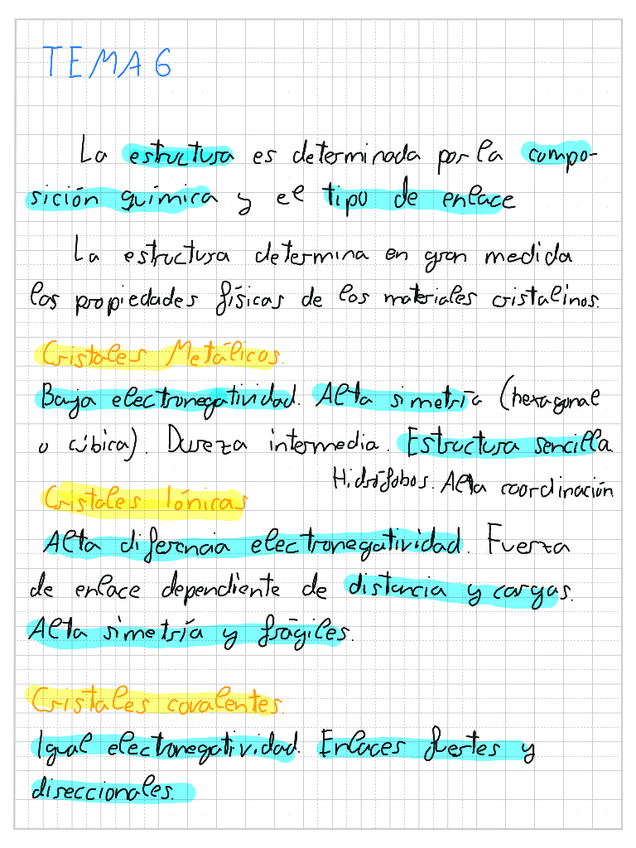 TEMA 6
La estructura es determinada por la compo-
sición química y el tipo de enlace
La estructura determina en gran medida
las propiedades físicas de los materiales cristalinos.
Cristales Metálicos.
Baja electronegatividad. Alta simetría (hexagonal
o cúbica). Dureza intermedia. Estructura sencilla.
Hidrófobos. Alta coordinación
Cristales Iónicas
Alta diferncia electronegatividad. Fuerza
de enlace dependiente de distancia y cargas.
Alta simetría y frágiles.
Cristales covalentes.
Igual electronegatividad. Enlaces fuertes y
direccionales.